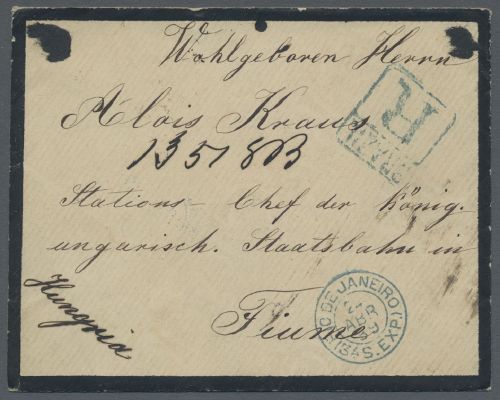 Wohlgeboren Herrn
Alois Kraus
R
Stations- Chef der König.
ungarisch. Staatsbahn in
Fiume
Hungria
RIO DE JANEIRO